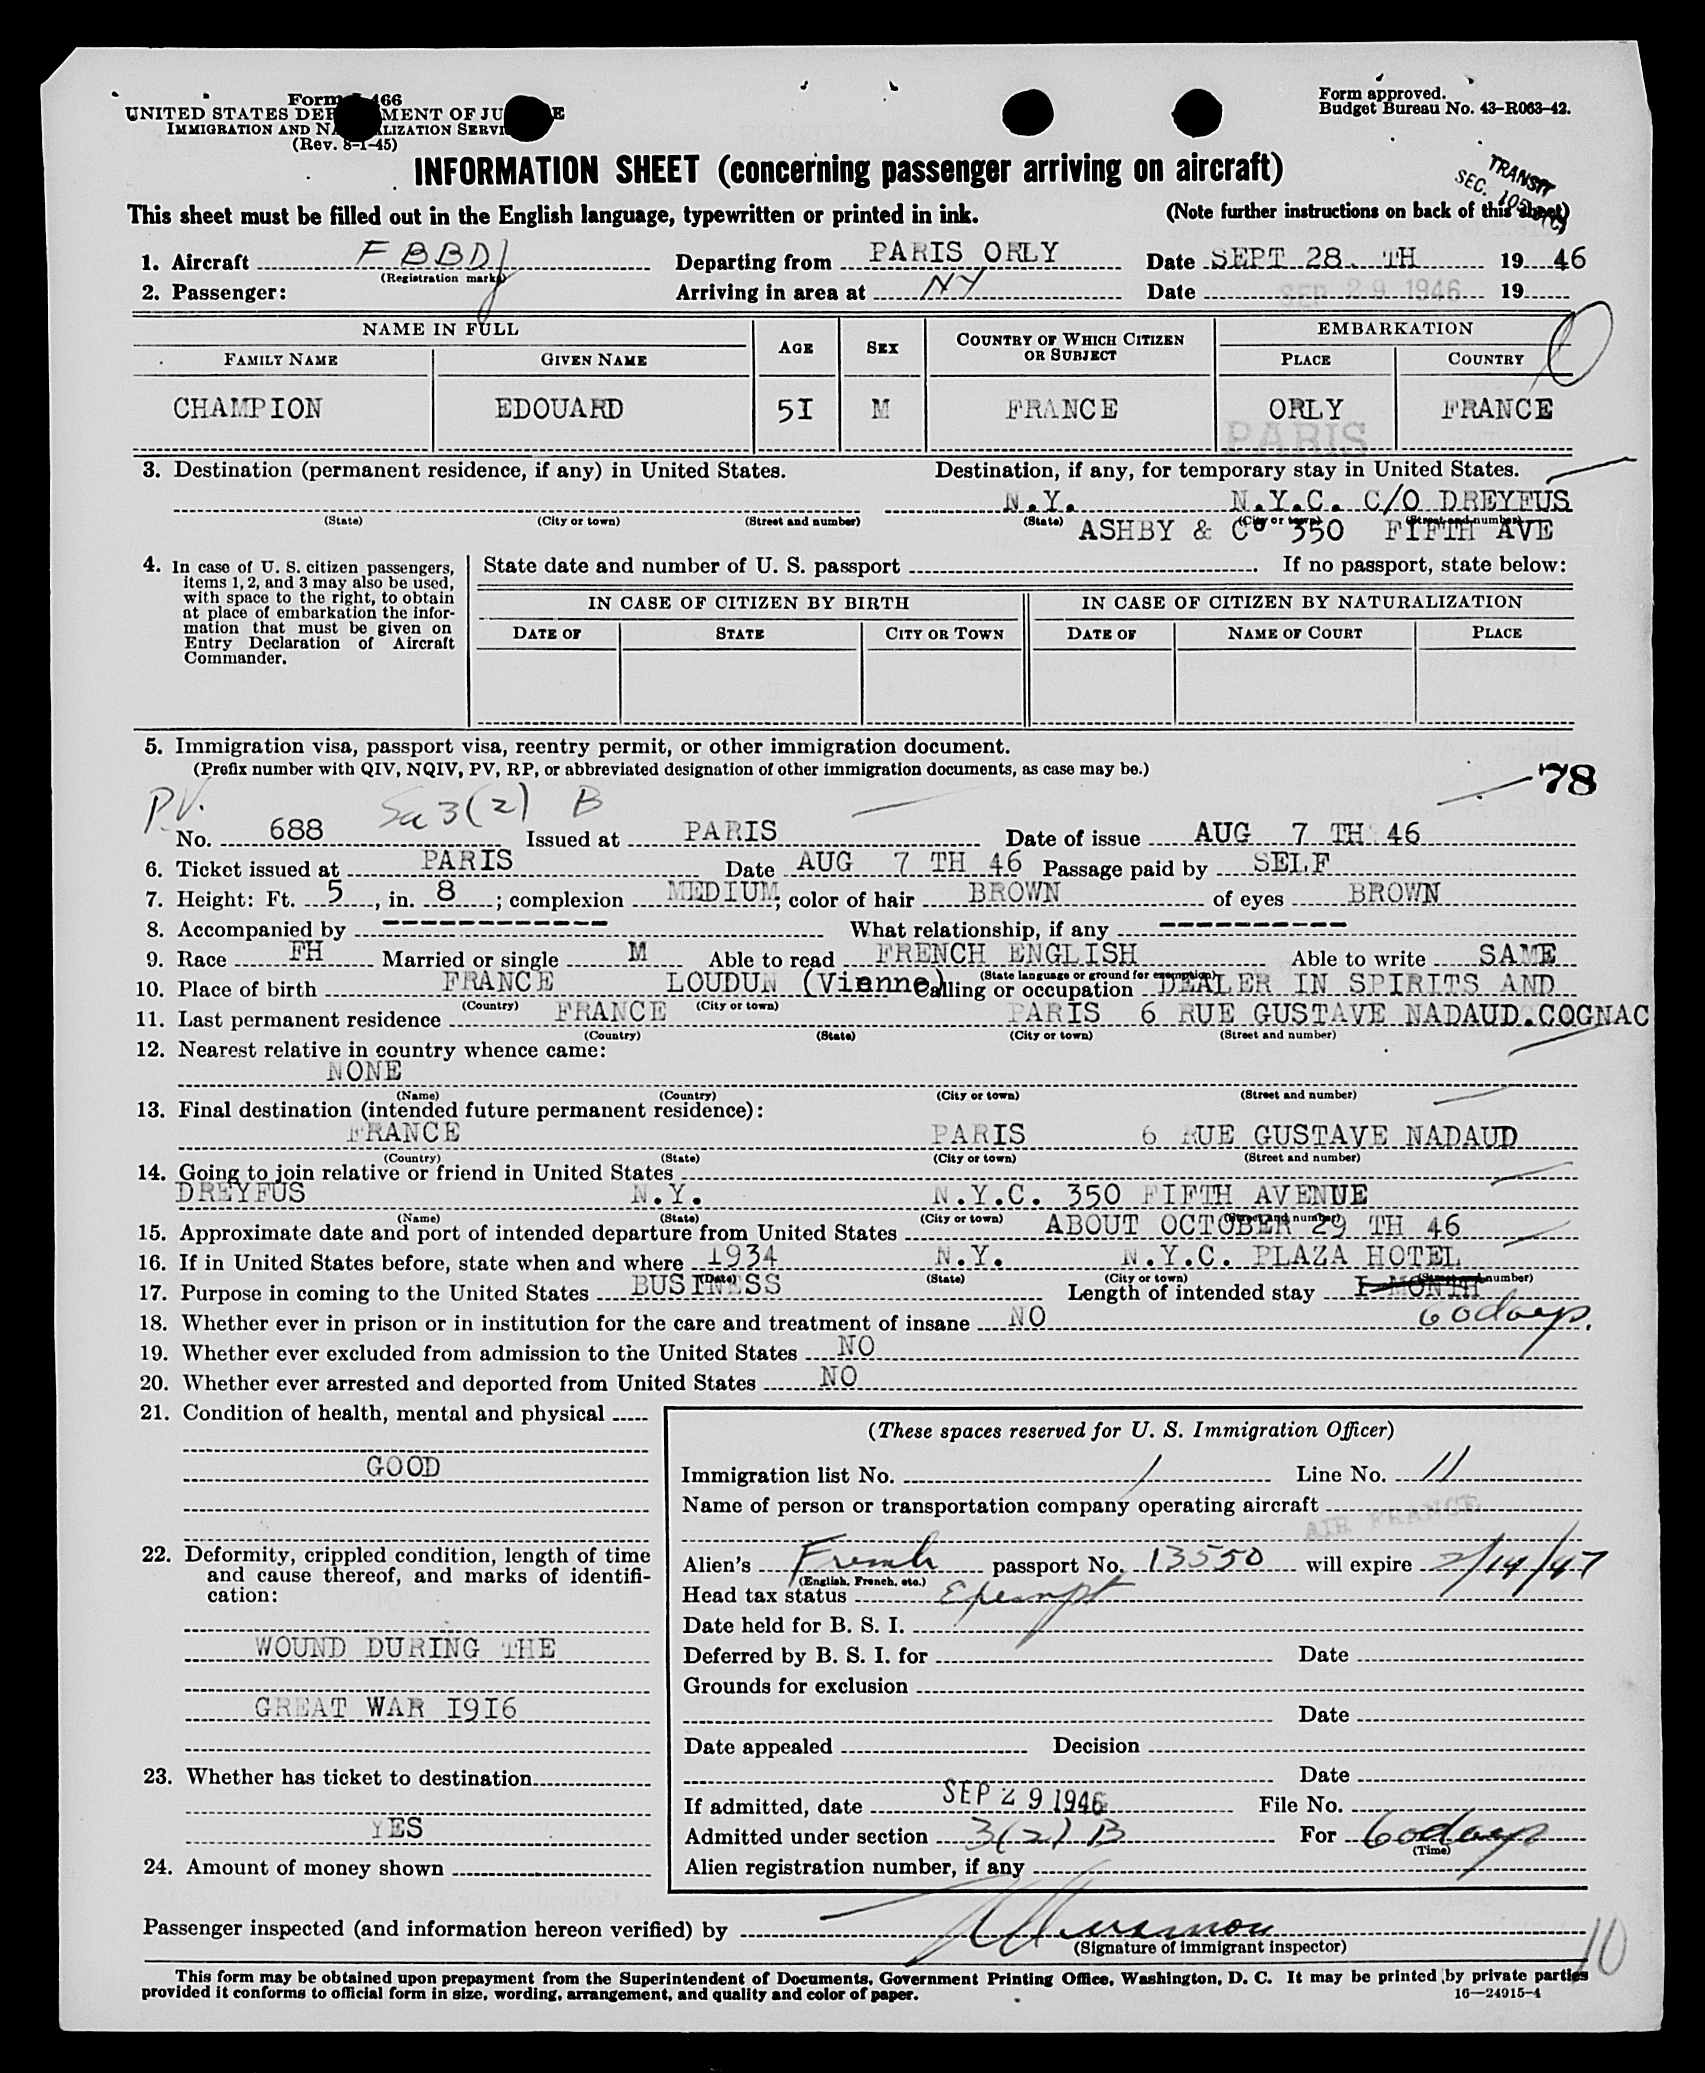 Form I-466
UNITED STATES DEPARTMENT OF JUSTICE
IMMIGRATION AND NATURALIZATION SERVICE
(Rev. 8-1-45)
Form approved.
Budget Bureau No. 43-R063-42.
INFORMATION SHEET (concerning passenger arriving on aircraft)
TRANSIT
SEC.
This sheet must be filled out in the English language, typewritten or printed in ink. (Note further instructions on back of this sheet)
1. Aircraft F BBDJ Departing from PARIS ORLY Date SEPT 28. TH 19 46
(Registration marks)
2. Passenger: Arriving in area at NY Date SEP 29 1946 19
NAME IN FULL AGE SEX COUNTRY OF WHICH CITIZEN OR SUBJECT EMBARKATION
FAMILY NAME GIVEN NAME PLACE COUNTRY
CHAMPION EDOUARD 5I M FRANCE ORLY FRANCE
PARIS
3. Destination (permanent residence, if any) in United States. Destination, if any, for temporary stay in United States.
N.Y. N.Y.C. C/O DREYFUS
(State) (City or town) (Street and number) (State) (City or town) (Street and number)
ASHBY & Co 350 FIFTH AVE
4. In case of U. S. citizen passengers, items 1, 2, and 3 may also be used, with space to the right, to obtain at place of embarkation the information that must be given on Entry Declaration of Aircraft Commander.
State date and number of U. S. passport If no passport, state below:
IN CASE OF CITIZEN BY BIRTH IN CASE OF CITIZEN BY NATURALIZATION
DATE OF STATE CITY OR TOWN DATE OF NAME OF COURT PLACE
5. Immigration visa, passport visa, reentry permit, or other immigration document.
(Prefix number with QIV, NQIV, PV, RP, or abbreviated designation of other immigration documents, as case may be.)
78
P.V. Sec 3(2) B
No. 688 Issued at PARIS Date of issue AUG 7 TH 46
6. Ticket issued at PARIS Date AUG 7 TH 46 Passage paid by SELF
7. Height: Ft. 5, in. 8; complexion MEDIUM; color of hair BROWN of eyes BROWN
8. Accompanied by ------------ What relationship, if any ----------
9. Race FH Married or single M Able to read FRENCH ENGLISH Able to write SAME
(State language or ground for exemption)
10. Place of birth FRANCE LOUDUN (Vienne) Calling or occupation DEALER IN SPIRITS AND
(Country) (City or town)
11. Last permanent residence FRANCE PARIS 6 RUE GUSTAVE NADAUD.COGNAC
(Country) (State) (City or town) (Street and number)
12. Nearest relative in country whence came:
NONE
(Name) (Country) (City or town) (Street and number)
13. Final destination (intended future permanent residence):
FRANCE PARIS 6 RUE GUSTAVE NADAUD
(Country) (State) (City or town) (Street and number)
14. Going to join relative or friend in United States
DREYFUS N.Y. N.Y.C. 350 FIFTH AVENUE
(Name) (State) (City or town) (Street and number)
15. Approximate date and port of intended departure from United States ABOUT OCTOBER 29 TH 46
16. If in United States before, state when and where 1934 N.Y. N.Y.C. PLAZA HOTEL
(Date) (State) (City or town) (Street and number)
17. Purpose in coming to the United States BUSINESS Length of intended stay I MONTH
60 days.
18. Whether ever in prison or in institution for the care and treatment of insane NO
19. Whether ever excluded from admission to the United States NO
20. Whether ever arrested and deported from United States NO
21. Condition of health, mental and physical
GOOD
22. Deformity, crippled condition, length of time and cause thereof, and marks of identification:
WOUND DURING THE
GREAT WAR I9I6
23. Whether has ticket to destination
YES
24. Amount of money shown
(These spaces reserved for U. S. Immigration Officer)
Immigration list No. 1 Line No. 11
Name of person or transportation company operating aircraft
AIR FRANCE
Alien's French passport No. 13550 will expire 2/14/47
(English, French, etc.)
Head tax status Exempt
Date held for B. S. I.
Deferred by B. S. I. for Date
Grounds for exclusion
Date
Date appealed Decision
Date
If admitted, date SEP 29 1946 File No.
Admitted under section 3(2) B For 60 days
(Time)
Alien registration number, if any
Passenger inspected (and information hereon verified) by
(Signature of immigrant inspector)
10
This form may be obtained upon prepayment from the Superintendent of Documents, Government Printing Office, Washington, D. C. It may be printed by private parties
provided it conforms to official form in size, wording, arrangement, and quality and color of paper. 16—24915-4